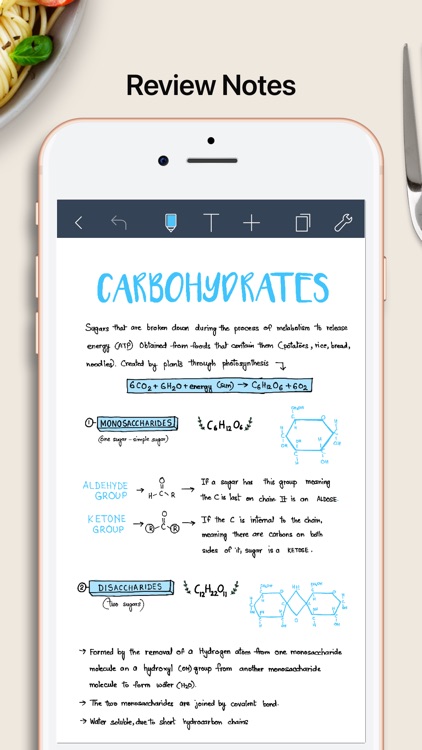 Review Notes
CARBOHYDRATES
Sugars that are broken down during the process of metabolism to release
energy (ATP). Obtained from foods that contain them (potatoes, rice, bread,
noodles). Created by plants through photosynthesis
6CO2 + 6H2O + energy (sun) → C6H12O6 + 6O2
1 MONOSACCHARIDES C6H12O6
(one sugar - simple sugar)
ALDEHYDE GROUP → → If a sugar has this group meaning
the C is last on chain It is an ALDOSE.
KETONE GROUP → → If the C is internal to the chain,
meaning there are carbons on both
sides of it, sugar is a KETOSE.
2 DISACCHARIDES C12H22O11
(two sugars)
→ Formed by the removal of a Hydrogen atom from one monosaccharide
molecule on a hydroxyl (OH) group from another monosaccharide
molecule to form water (H2O).
→ The two monosaccharides are joined by covalent bond.
→ Water soluble, due to short hydrocarbon chains